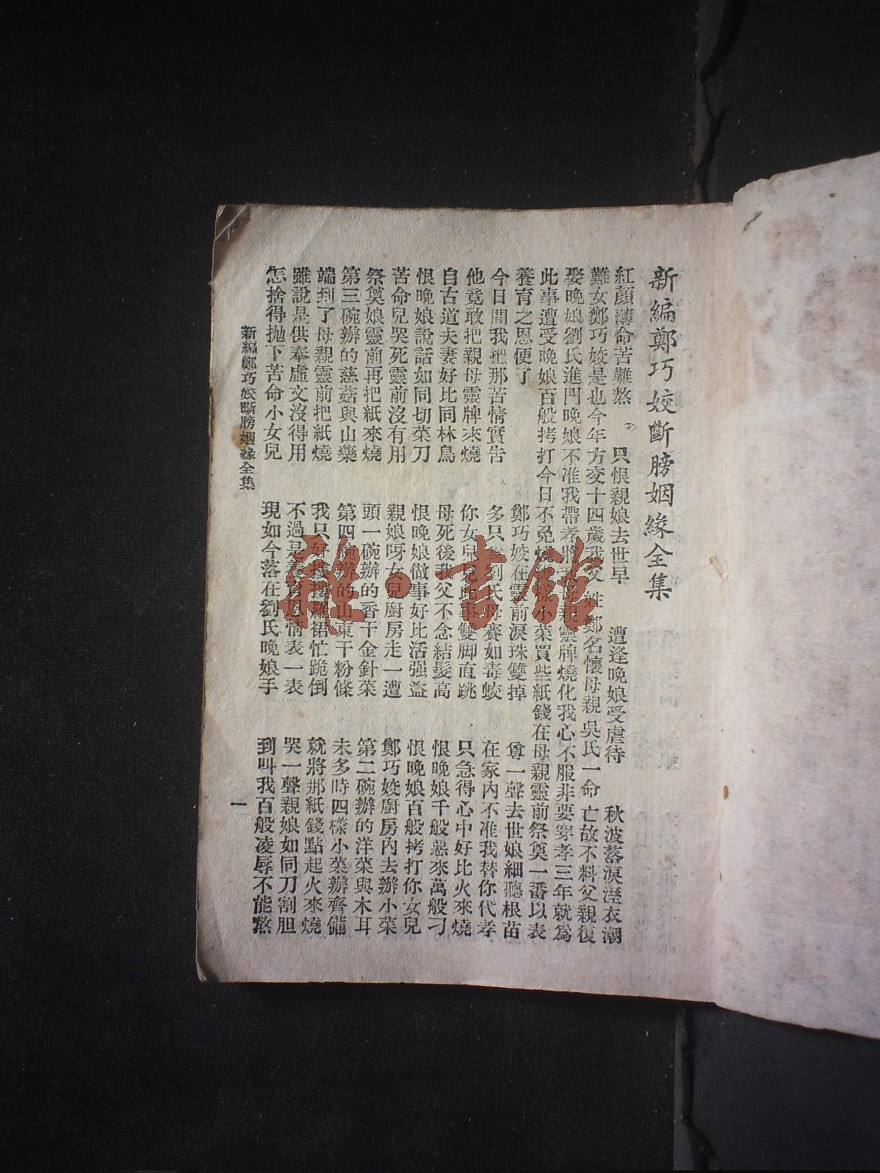 新編鄭巧姣斷膀姻緣全集
紅顏薄命苦難熬 只恨親娘去世早 遭逢晚娘受虐待 秋波落淚溼衣潮
難女鄭巧姣是也今年方交十四歲我父姓鄭名懷母親吳氏一命亡故不料父親復
娶晚娘劉氏進門晚娘不准我帶孝將母親靈牌燒化我心不服非要穿孝三年就為
此事遭受晚娘百般拷打今日不免小菜買些紙錢在母親靈前祭奠一番以表
養育之恩便了 鄭巧姣在靈前淚珠雙掉 尊一聲去世娘細聽根苗
今日間我把那苦情實告 多只劉氏母養如毒蛟 在家內不准我替你代孝
他竟敢把親母靈牌來燒 你女兒見此事雙脚直跳 只急得心中好比火來燒
自古道夫妻好比同林鳥 母死後我父不念結髮高 恨晚娘千般惡來萬般刁
恨晚娘說話如同切菜刀 恨晚娘做事好比活强盜 恨晚娘百般拷打你女兒
苦命兒哭死靈前沒有用 親娘呀女兒厨房走一遭 鄭巧姣厨房內去辦小菜
祭奠娘靈前再把紙來燒 頭一碗辦的香干金針菜 第二碗辦的洋菜與木耳
第三碗辦的慈菇與山藥 第四碗辦的山東干粉條 未多時四樣小菜辦齊備
端到了母親靈前把紙燒 我只好裙忙跪倒 就將那紙錢點起火來燒
雖說是供奉虛文沒得用 不過是養育恩情表一表 哭一聲親娘如同刀割胆
怎捨得抛下苦命小女兒 現如今落在劉氏晚娘手 到叫我百般凌辱不能熬
新編鄭巧姣斷膀姻緣全集
一
雅書館